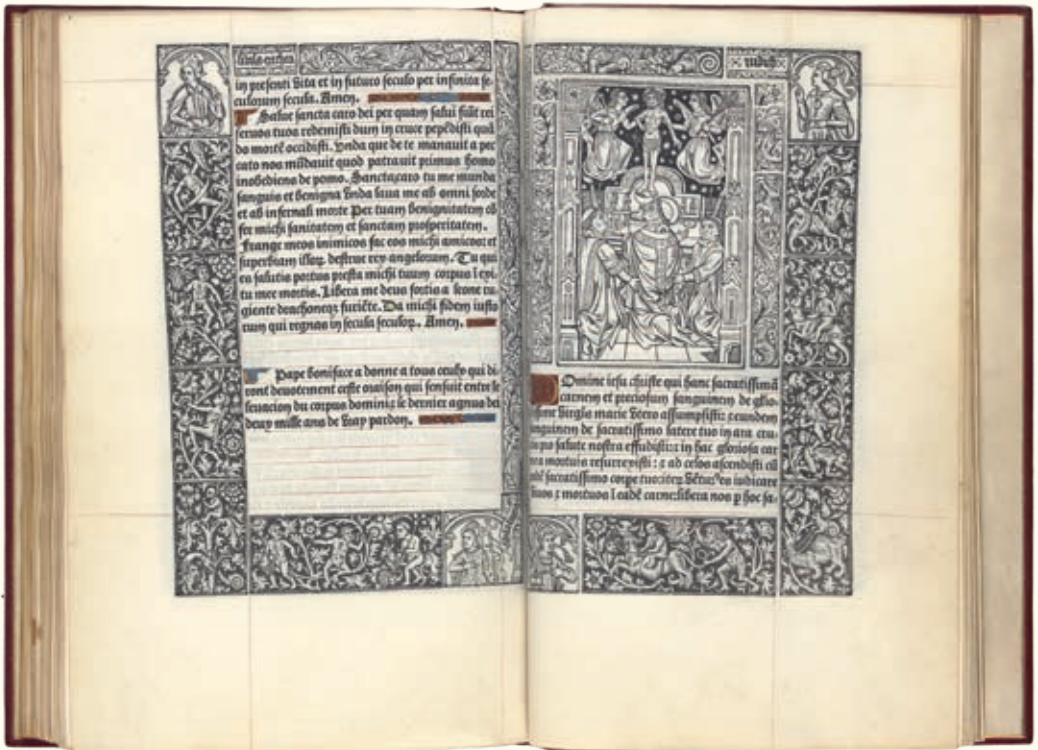 in presenti vita et in futuro seculo per infinita se-
culorum secula. Amen.
Salue sancta caro dei per quam salui fiūt rei
seruos tuos redemisti dum in cruce pepēdisti quā
do mortē occidisti. Unda que de te manauit a pec
cato nos mūdauit quod patrauit primus homo
inobediens de pomo. Sancta caro tu me munda
sanguis et benigna vnda laua me ab omni sorde
et ab infernali morte Per tuam benignitatem cō
fer michi sanitatem et sanctam prosperitatem.
Frange meos inimicos fac eos michi amicos: et
superbiam illoꝝ destrue rex angelorum. Tu qui
es salutis portus presta michi tuum corpus ī exi-
tu mee mortis. Libera me deus fortis a leone ru
giente drachoneqꝫ furiēte. Da michi fidem iusto
rum qui regnas in secula seculoꝝ. Amen.
Pape boniface a donne a tous ceulx qui di
ront deuotement ceste oraison qui sensuit entre le
leuacion du corpus domini: ⁊ le dernier agnus dei
deux mille ans de vray pardon.
iudich
Omine iesu christe qui hanc sacratissimā
carnem et preciosum sanguinem de glo-
virginis marie vtero assumpsisti: ⁊ eundem
sanguinem de sacratissimo latere tuo in ara cru-
salute nostra effudisti: ⁊ in hac gloriosa car
mortuis resurrexisti: ⁊ ad celos ascendisti cū
sacratissimo corpe tuo: iudicare
viuos ⁊ mortuos ī eadē carne: libera nos ꝑ hoc sa-